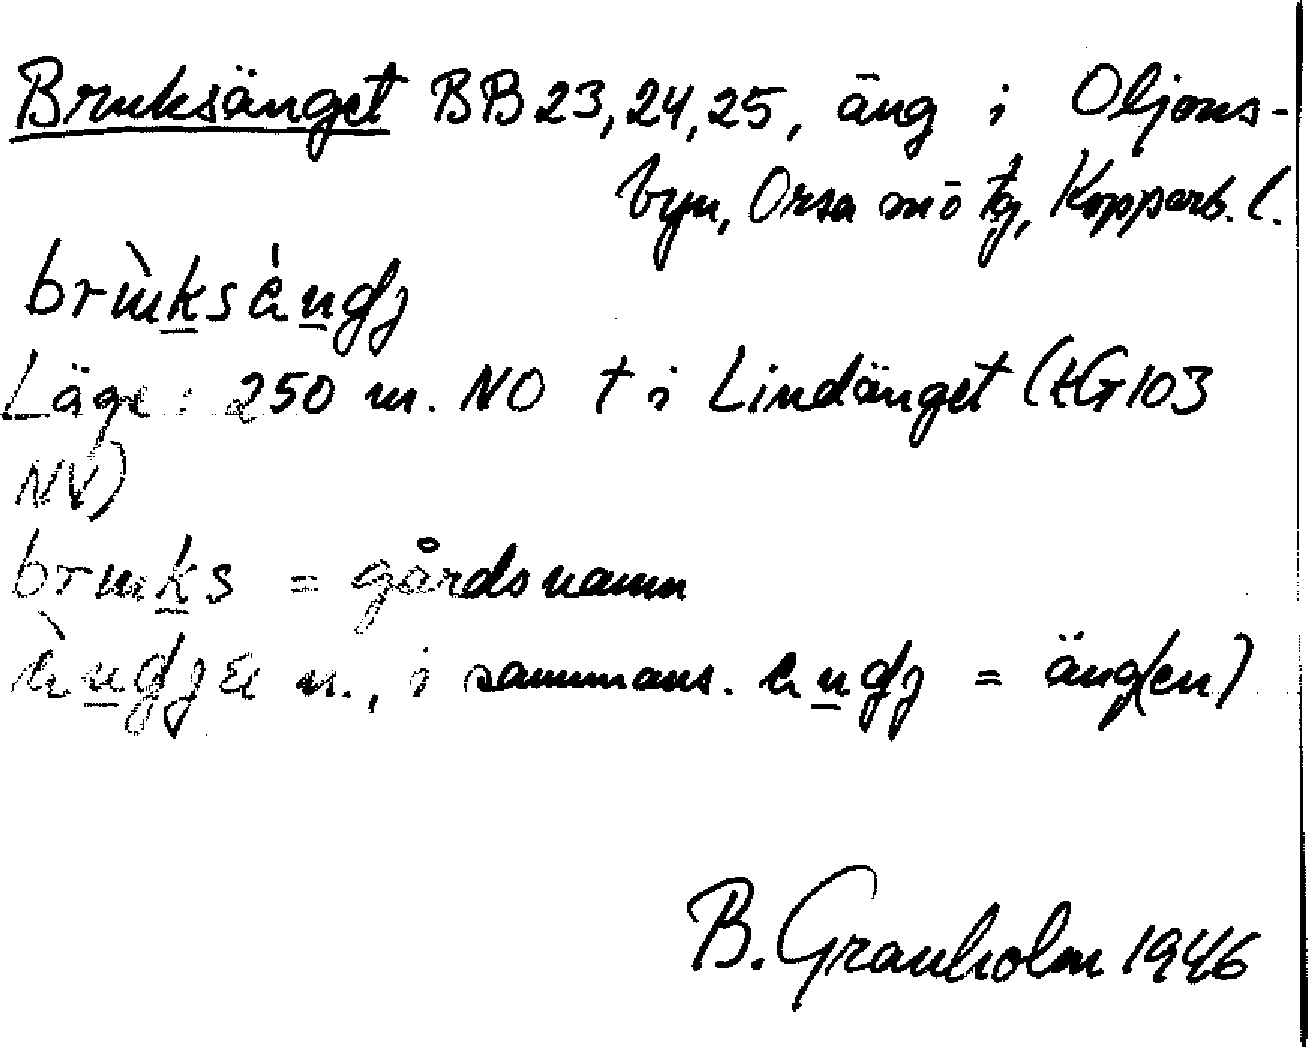 Bruksänget BB23,24,25, äng i Oljons-
byn, Orsa mō tg, Kopparb. l.
brùksàngdj
Läge: 250 m. NO t i Lindänget (tG103
NV)
bruks = gårdsnamn
n., i sammans. angdj = äng(en)
B. Granholm 1946